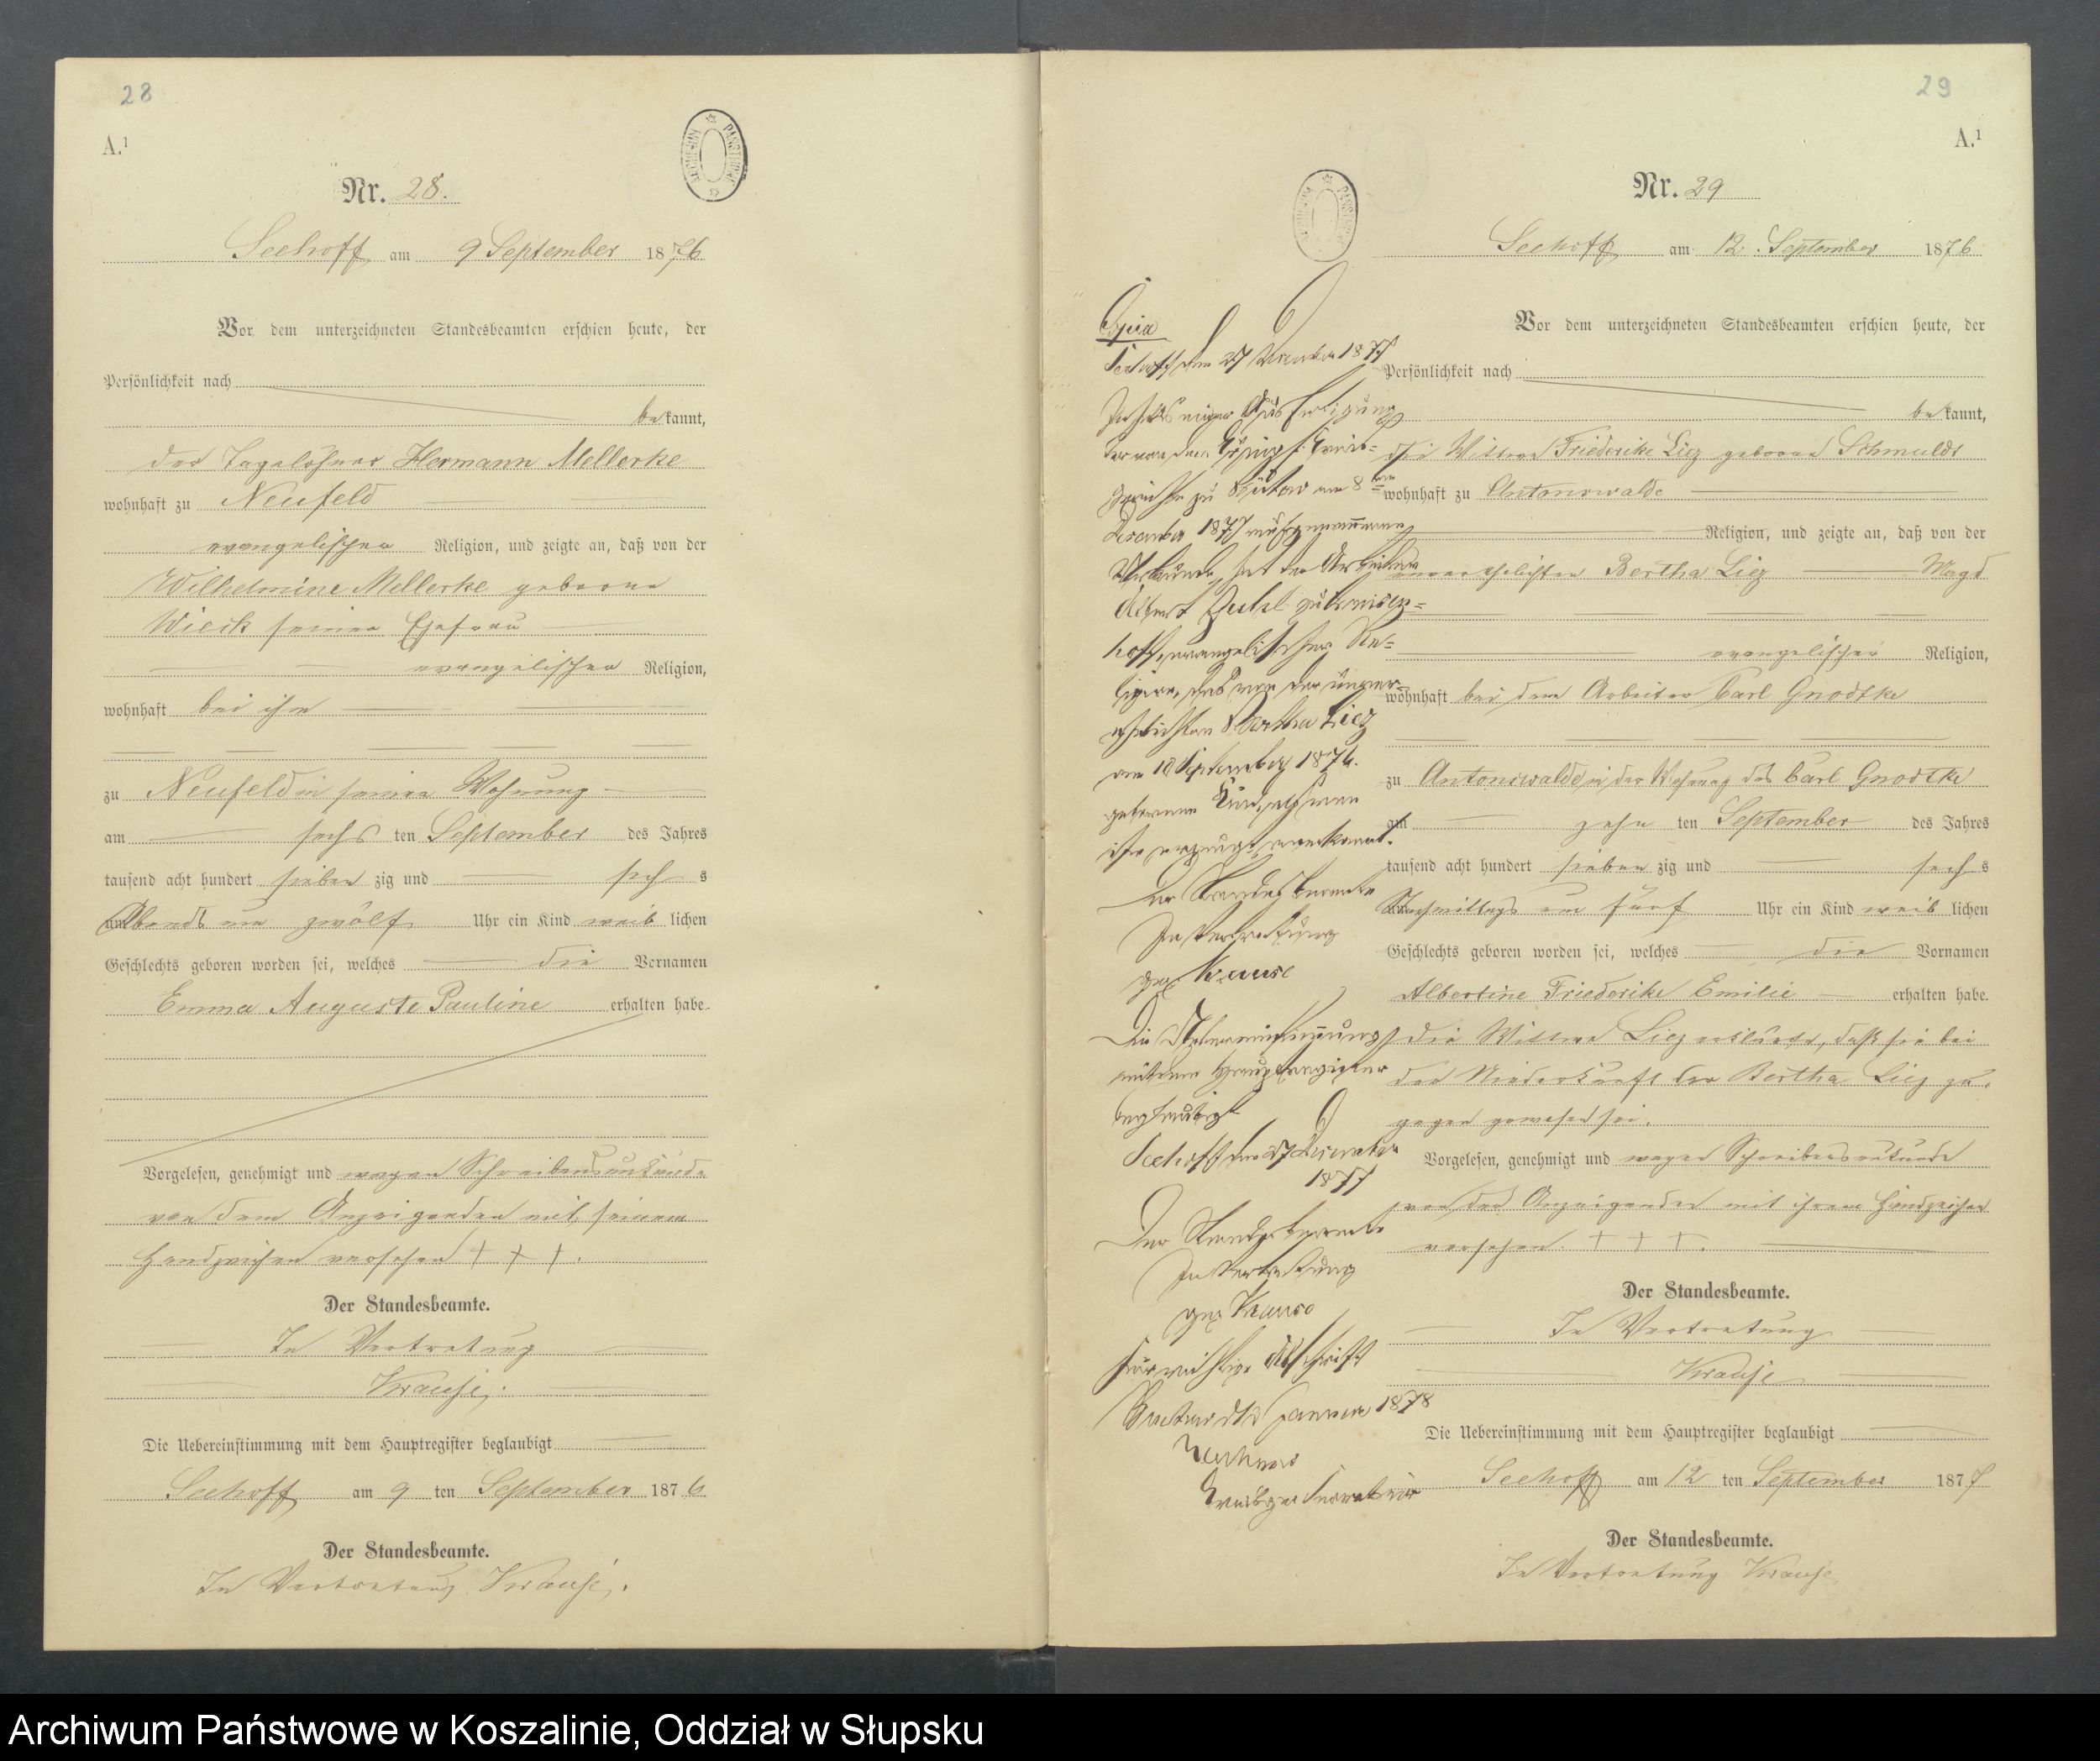 28
A.¹
Nr. 28.
Seehoff am 9 September 1876
Vor dem unterzeichneten Standesbeamten erschien heute, der
Persönlichkeit nach
bekannt,
der Tagelöhner Hermann Mellerke
wohnhaft zu Neufeld
evangelischer Religion, und zeigte an, daß von der
Wilhelmine Mellerke geborne
Wieck seiner Ehefrau
evangelischer Religion,
wohnhaft bei ihm
zu Neufeld in seiner Wohnung
am sechs ten September des Jahres
tausend acht hundert sieben zig und sech s
Abends um zwölf Uhr ein Kind weib lichen
Geschlechts geboren worden sei, welches die Vornamen
Emma Auguste Pauline erhalten habe.
Vorgelesen, genehmigt und wegen Schreibensunkunde
von dem Anzeigenden mit seinem
Handzeichen versehen + + +.
Der Standesbeamte.
In Vertretung
Krause.
Die Uebereinstimmung mit dem Hauptregister beglaubigt
Seehoff am 9 ten September 1876
Der Standesbeamte.
In Vertretung Krause.
29
A.¹
Nr. 29
Seehoff am 12. September 1876
Vor dem unterzeichneten Standesbeamten erschien heute, der
Persönlichkeit nach
bekannt,
die Wittwe Friederike Liez geborne Schmuldt
wohnhaft zu Antonswalde
Religion, und zeigte an, daß von der
unverehelichten Bertha Liez Magd
evangelischer Religion,
wohnhaft bei dem Arbeiter Carl Gnodtke
zu Antonswalde in der Wohnung des Carl Gnodtke
am zehn ten September des Jahres
tausend acht hundert sieben zig und sech s
Nachmittags um fünf Uhr ein Kind weib lichen
Geschlechts geboren worden sei, welches die Vornamen
Albertine Friederike Emilie erhalten habe.
die Wittwe Liez erklärte, daß sie bei
der Niederkunft der Bertha Liez zu-
gegen gewesen sei.
Vorgelesen, genehmigt und wegen Schreibensunkunde
von der Anzeigenden mit ihrem Handzeichen
versehen. + + +.
Der Standesbeamte.
In Vertretung
Krause
Die Uebereinstimmung mit dem Hauptregister beglaubigt
Seehoff am 12 ten September 1877
Der Standesbeamte.
In Vertretung Krause
Copia
Seehoff den 27 December 1877
der von dem Königl. Kreis-
gericht zu Bütow am 8ten
December 1877 aufgenommenen
Urkunde, hat der Arbeiter
Albert
hoff, evangelischer Re-
ligion, das von der unver-
ehelichten Bertha Liez
am 10 September 1876.
geborene Kind, als von
ihm erzeugt, anerkannt.
Der Standesbeamte
In Vertretung
gez Krause
Die Uebereinstimmung
mit dem Hauptregister
beglaubigt
Seehoff den 27 December
1877
Der Standesbeamte
In Vertretung
gez Krause
Für richtige Abschrift
Januar 1878
Kreisger Secretair
Archiwum Państwowe w Koszalinie, Oddział w Słupsku